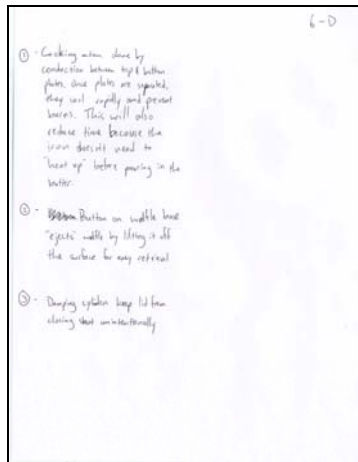 6-D
① - Cooking action done by
conduction between top & bottom
plates. Once plates are separated,
they cool rapidly and prevent
burns. This will also
reduce time because the
iron doesn't need to
"heat up" before pouring in the
batter.
② - Button on waffle base
"ejects" waffle by lifting it off
the surface for easy retrieval
③ - Damping cylinders keep lid from
closing shut unintentionally